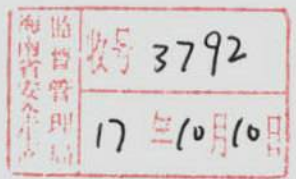 海南省安全生产
监督管理局
收号 3792
17 年 10 月 10 日